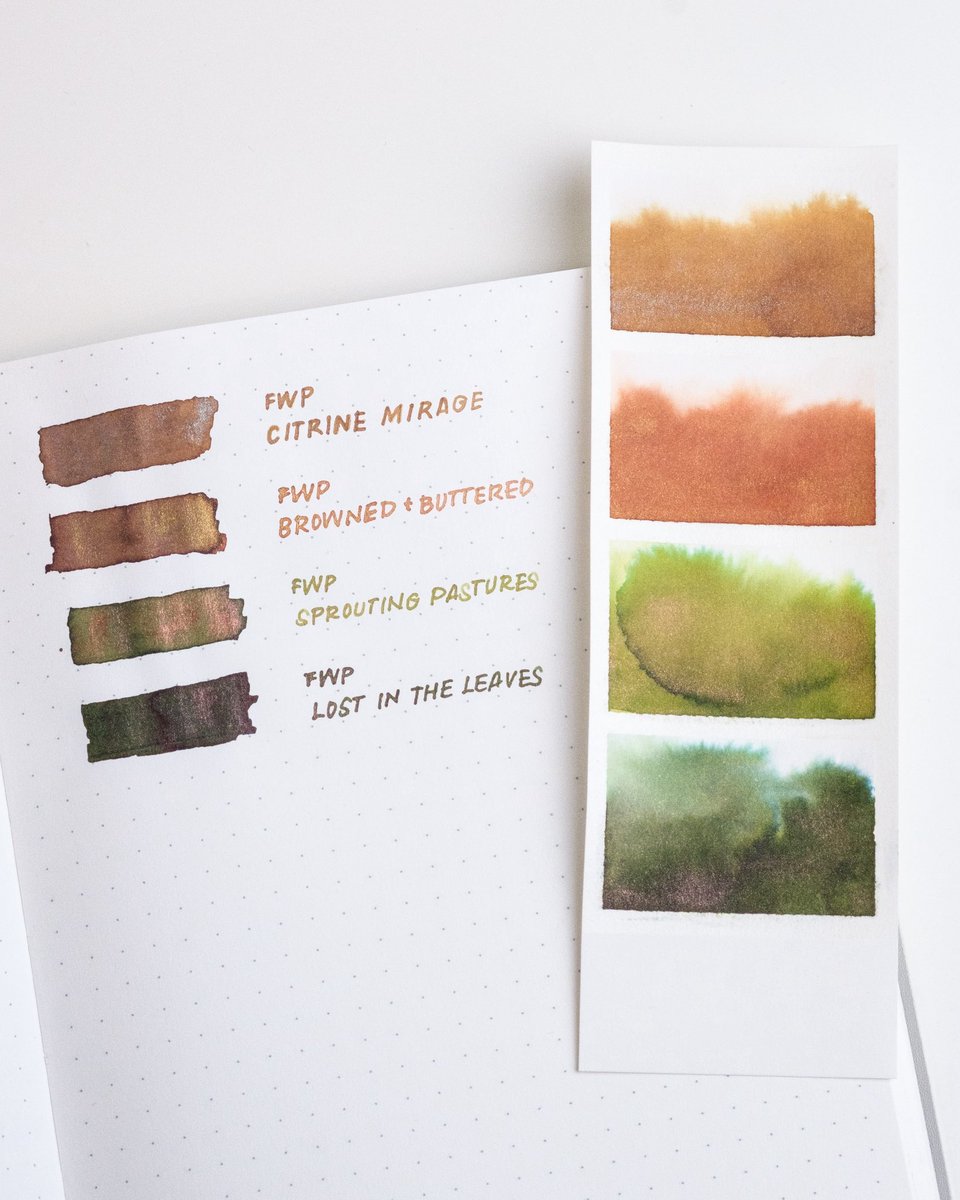 FWP
CITRINE MIRAGE
FWP
BROWNED + BUTTERED
FWP
SPROUTING PASTURES
FWP
LOST IN THE LEAVES